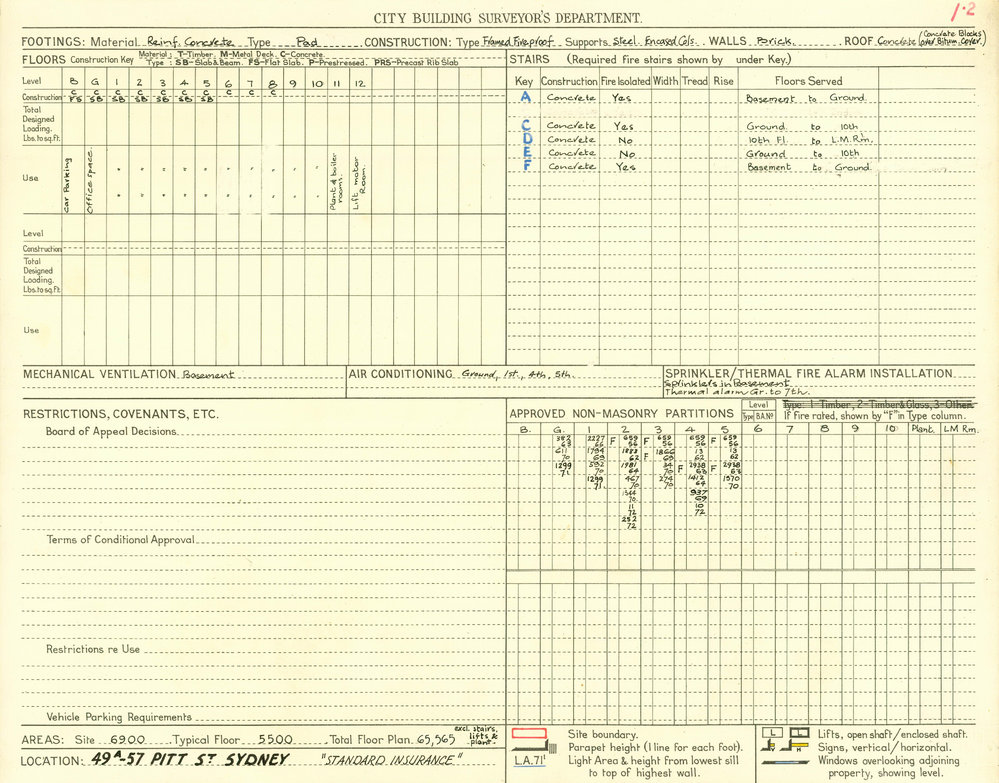 CITY BUILDING SURVEYOR'S DEPARTMENT.
1·2
FOOTINGS: Material Reinf. Concrete Type Pad CONSTRUCTION: Type Framed Fireproof Supports Steel Encased Cols. WALLS Brick. ROOF Concrete (Concrete Blocks over Bitum. Cover.)
FLOORS Construction Key Material: T-Timber. M-Metal Deck. C-Concrete.
Type: SB-Slab&Beam. FS-Flat Slab. P-Prestressed. PRS-Precast Rib Slab
Level B G 1 2 3 4 5 6 7 8 9 10 11 12
C C C C C C C C C C
Construction FS SB SB SB SB SB SB
Total Designed Loading. Lbs. to sq. ft.
Use Car Parking Office space. " " " " " " " " " " Plant & boiler rooms. Lift motor Room.
" " " " " " " " " "
Level
Construction
Total Designed Loading. Lbs. to sq. ft.
Use
STAIRS (Required fire stairs shown by under Key.)
Key Construction Fire Isolated Width Tread Rise Floors Served
A Concrete Yes Basement to Ground.
C Concrete Yes Ground. to 10th
D Concrete No 10th Fl. to L.M.Rm.
E Concrete No Ground to 10th
F Concrete Yes Basement to Ground.
MECHANICAL VENTILATION. Basement
AIR CONDITIONING Ground, 1st, 4th, 5th.
SPRINKLER/THERMAL FIRE ALARM INSTALLATION
Sprinklers in Basement
Thermal alarm Gr. to 7th.
RESTRICTIONS, COVENANTS, ETC.
Board of Appeal Decisions.
Terms of Conditional Approval
Restrictions re Use
Vehicle Parking Requirements
APPROVED NON-MASONRY PARTITIONS Level Type B.A.Nº Type: 1-Timber, 2-Timber & Glass, 3-Other.
If fire rated, shown by "F" in Type column.
B. G. 1 2 3 4 5 6 7 8 9 10 Plant. LM Rm.
382 2227 F 659 F 659 659 F 659
63 66 56 56 56 56
611 1794 1883 1866 13 13
70 69 62 69 62 62
1299 592 1981 34 F 2938 F 2938
71 70 64 70 63 63
1299 467 274 1412 1570
71. 70 70 64 70
1344 937
70 69
11 10
72 72
252
72
AREAS: Site 6900 Typical Floor 5500 Total Floor Plan. 65,565 excl. stairs, lifts & plant.
LOCATION: 49A-57 PITT ST SYDNEY "STANDARD INSURANCE"
Site boundary.
Parapet height (1 line for each foot).
L.A. 71' Light Area & height from lowest sill to top of highest wall.
L L Lifts, open shaft/enclosed shaft.
Signs, vertical/horizontal.
Windows overlooking adjoining property, showing level.